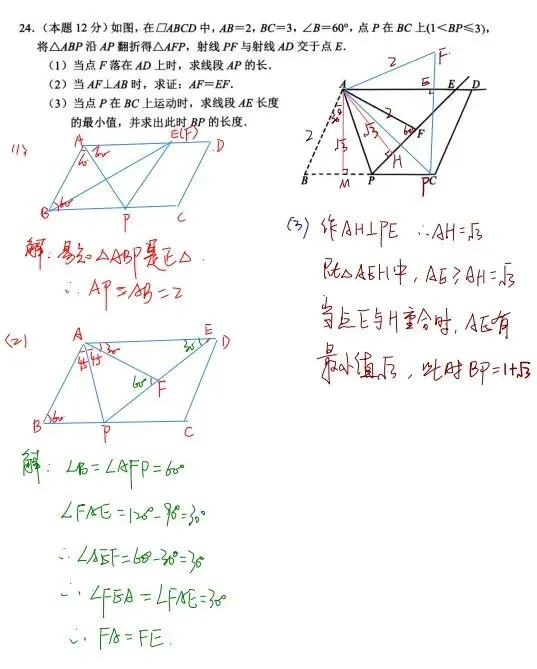 24.（本题 12 分）如图，在□ABCD 中，AB=2，BC=3，∠B=60°，点 P 在 BC 上(1<BP≤3)，
将△ABP 沿 AP 翻折得△AFP，射线 PF 与射线 AD 交于点 E．
（1）当点 F 落在 AD 上时，求线段 AP 的长．
（2）当 AF⊥AB 时，求证：AF=EF．
（3）当点 P 在 BC 上运动时，求线段 AE 长度
的最小值，并求出此时 BP 的长度．
F
2
A
E
E
D
30°
2
2
√3
√3
60°
F
H
B
M
P
PC
(1)
A
E(F)
D
60
60
B
60°
P
C
解：易知△ABP是正△.
∴ AP=AB=2
(2)
A
E
D
45
45
30°
30°
60°
F
B
60°
P
C
解：∠B=∠AFP=60°
∠FAE=120°-90°=30°
∴ ∠AEF=60°-30°=30°
∴ ∠FEA=∠FAE=30°
∴ FA=FE.
(3) 作AH⊥PE ∴AH=√3
Rt△AEH中，AE≥AH=√3
当点E与H重合时，AE有
最小值√3，此时BP=1+√3